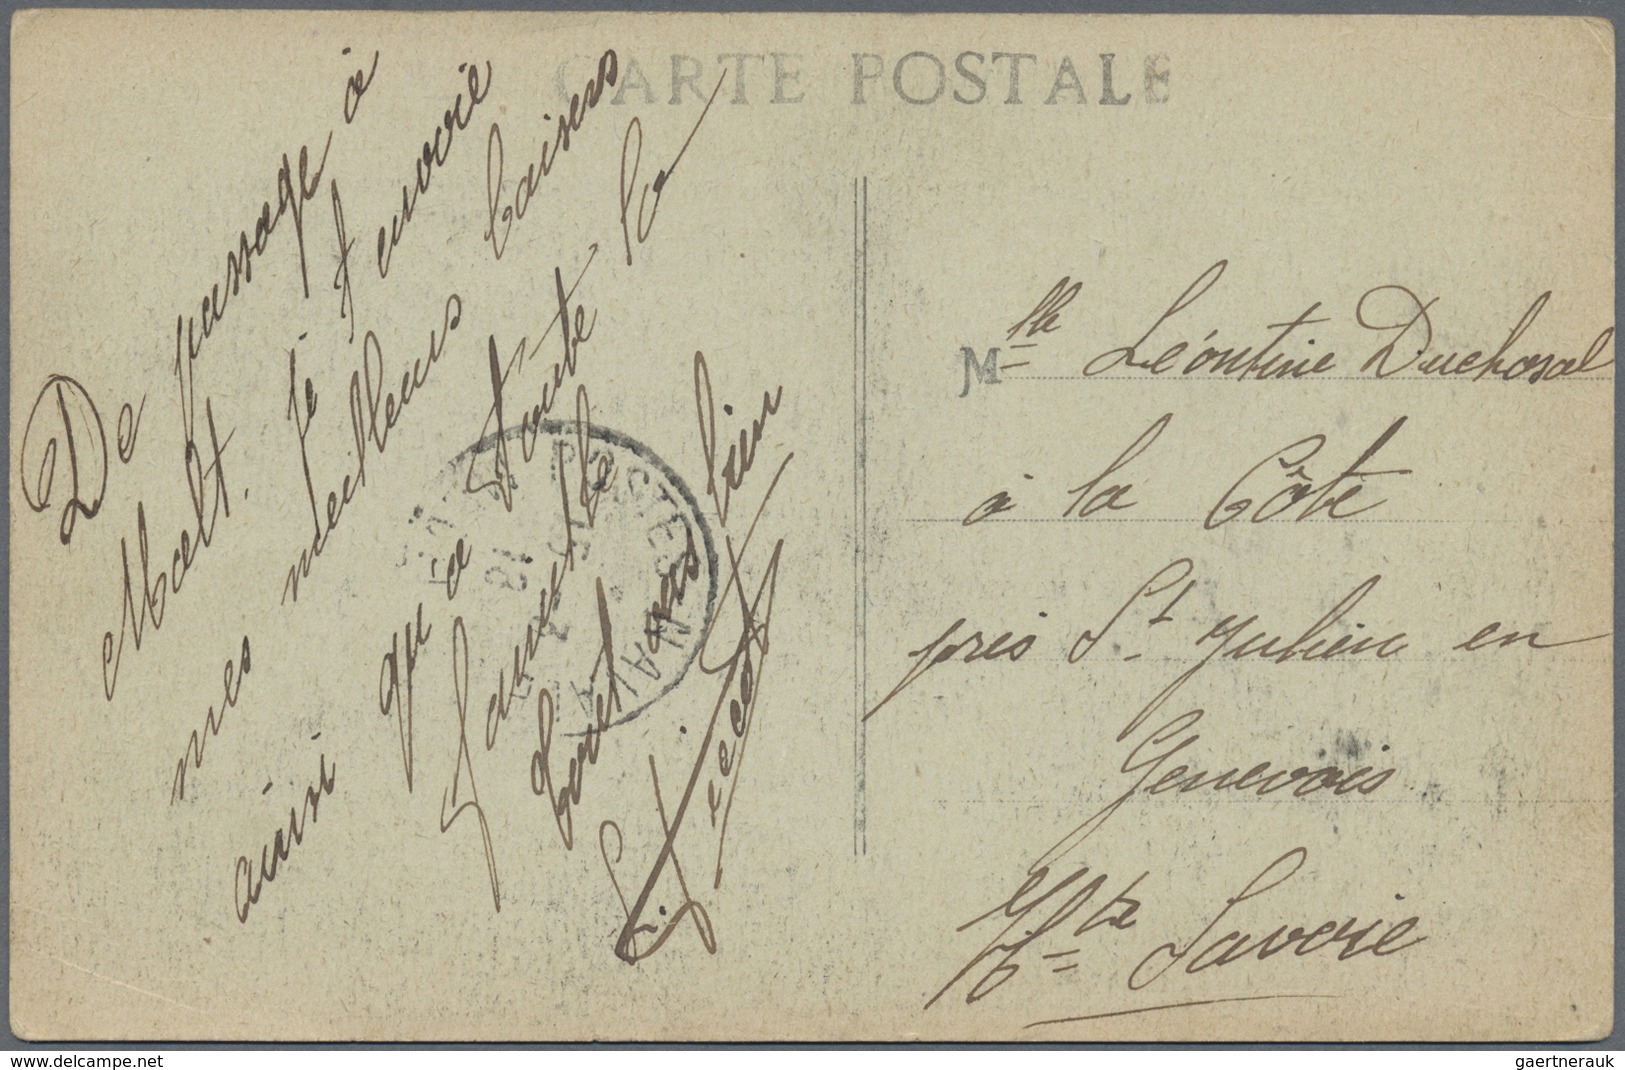 CARTE POSTALE
De passage à
Malt. je t'envoie
mes meilleurs baisers
ainsi qu'à toute la
famille
tout bien
Mlle Léontine Duchosal
à la Côte
près St Julien en
Genevois
Hte Savoie
POSTES
www.delcampe.net
gaertnerauk